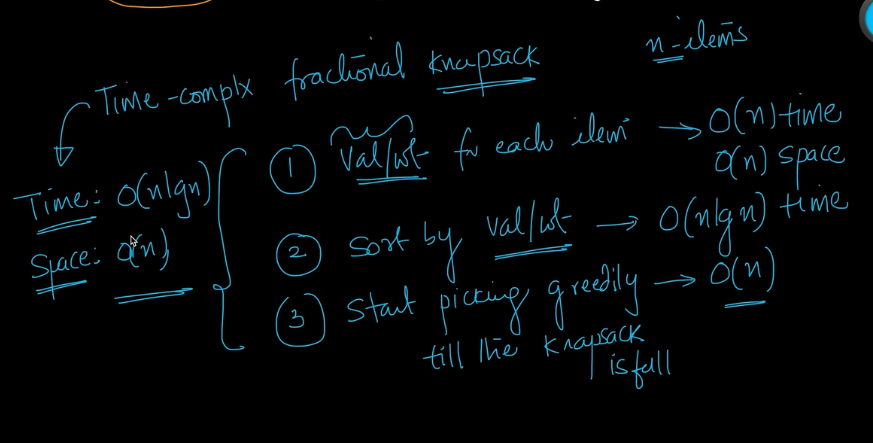 n-items
Time-complx fractional knapsack
Time: O(nlgn)
Space: O(n)
1 val/wt fr each item → O(n) time
O(n) space
2 Sort by val/wt → O(nlgn) time
3 Start picking greedily → O(n)
till the knapsack
is full